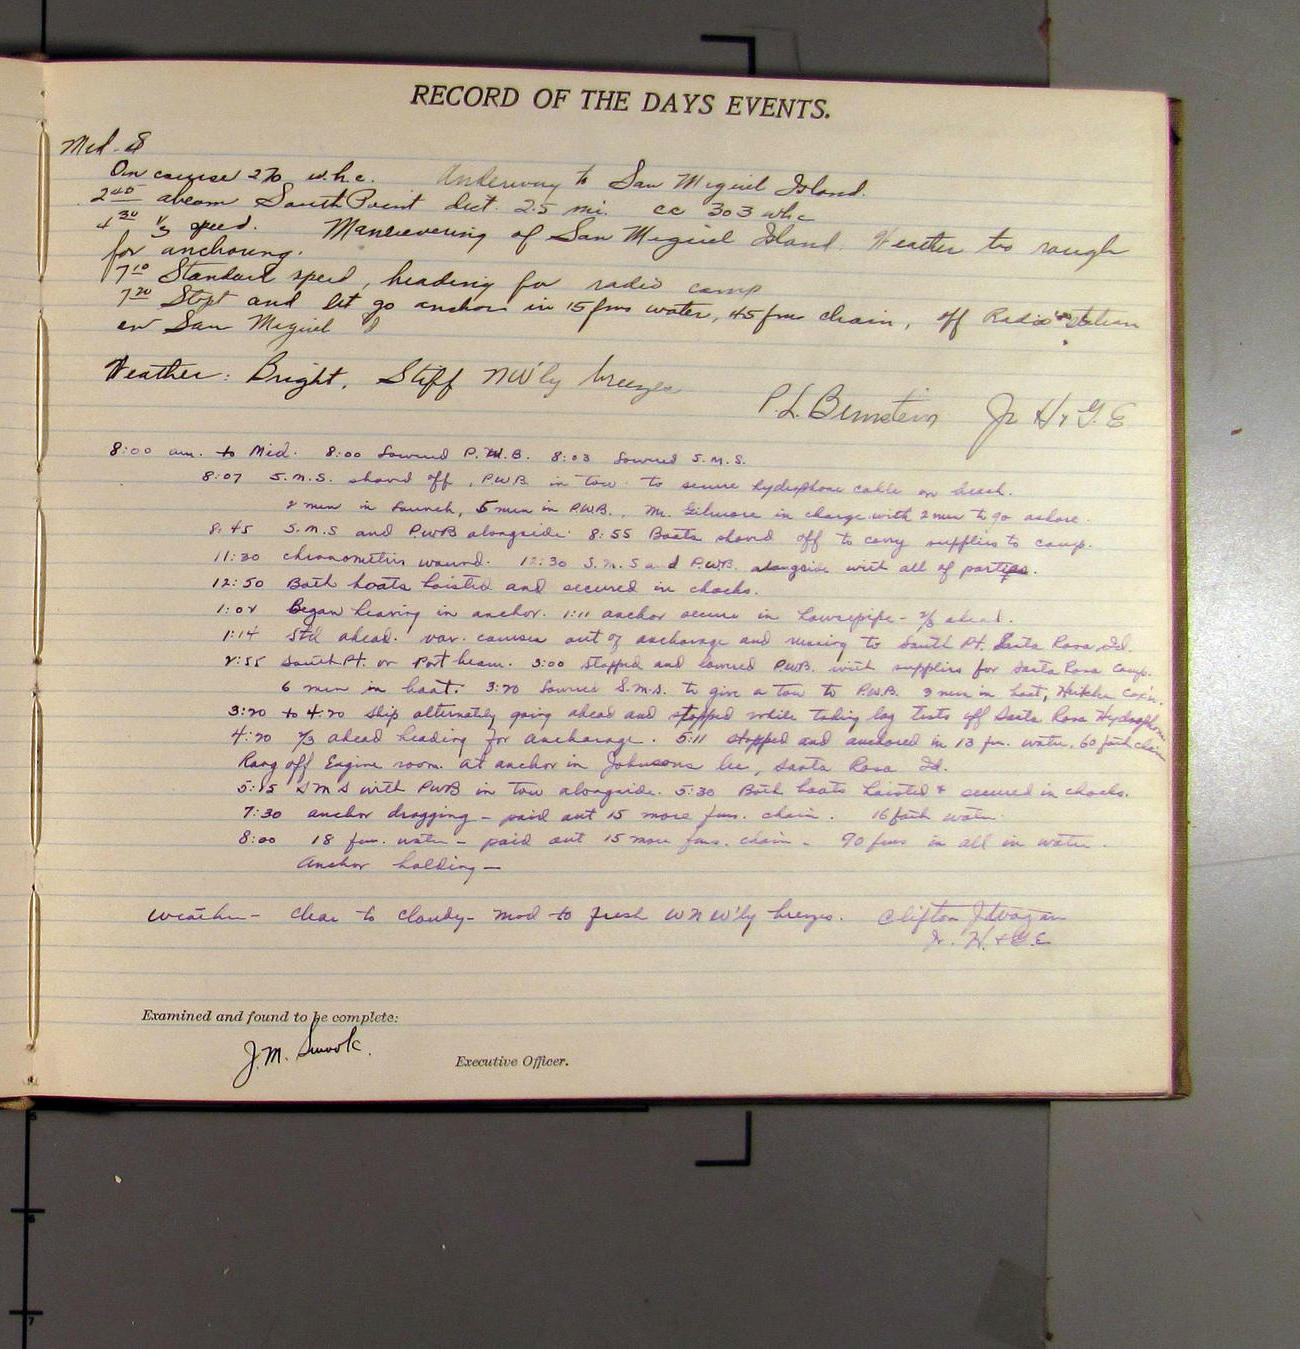 RECORD OF THE DAYS EVENTS.
Mid - 8
On course 270 w.h.c. Underway to San Miguel Island.
2 45 abeam South Point dist. 2.5 mi. cc 303 whc
4 30 1/3 speed. Maneuvering off San Miguel Island. Weather too rough
for anchoring.
7 10 Standard speed, heading for radio camp
7 20 Stopt and let go anchor in 15 fms water, 45 fm chain, off Radio station
on San Miguel
Weather: Bright, Stiff NW'ly breezes
P. L. Bernstein Jr. H & G. E
8:00 am. to Mid. 8:00 lowered P.W.B. 8:03 lowered S.M.S.
8:07 S.M.S. shoved off, PWB in tow to secure hydrophone cable on beach.
2 men in launch, 5 men in P.W.B., Mr. Gilmore in charge with 2 men to go ashore.
8:45 S.M.S and PWB alongside. 8:55 Boats shoved off to carry supplies to camp.
11:30 chronometers wound. 12:30 S.M.S and P.W.B. alongside with all of parties.
12:50 Both boats hoisted and secured in chocks.
1:02 Began heaving in anchor. 1:11 anchor secure in hawsepipe - 2/3 ahead.
1:14 Std ahead. var. courses out of anchorage and running to South Pt. Santa Rosa Id.
2:55 South Pt. on Port beam. 3:00 stopped and lowered P.W.B. with supplies for Santa Rosa Camp.
6 men in boat. 3:20 lowered S.M.S. to give a tow to P.W.B. 3 men in boat, Cox'n.
3:20 to 4:20 ship alternately going ahead and stopped while taking log tests off Santa Rosa Hydrophone
4:20 1/3 ahead heading for anchorage. 5:11 stopped and anchored in 13 fm. water, 60 fath chain
Rang off Engine room. At anchor in Johnsons lee, Santa Rosa Id.
5:15 S M S with PWB in tow alongside. 5:30 Both boats hoisted & secured in chocks.
7:30 anchor dragging - paid out 15 more fms. chain. 16 fath water.
8:00 18 fm. water - paid out 15 more fms. chain - 90 fms in all in water.
Anchor holding -
Weather - clear to cloudy - mod to fresh WNW'ly breezes. Clifton
Jr. H. & G. E
Examined and found to be complete:
J. M. Smook.
Executive Officer.